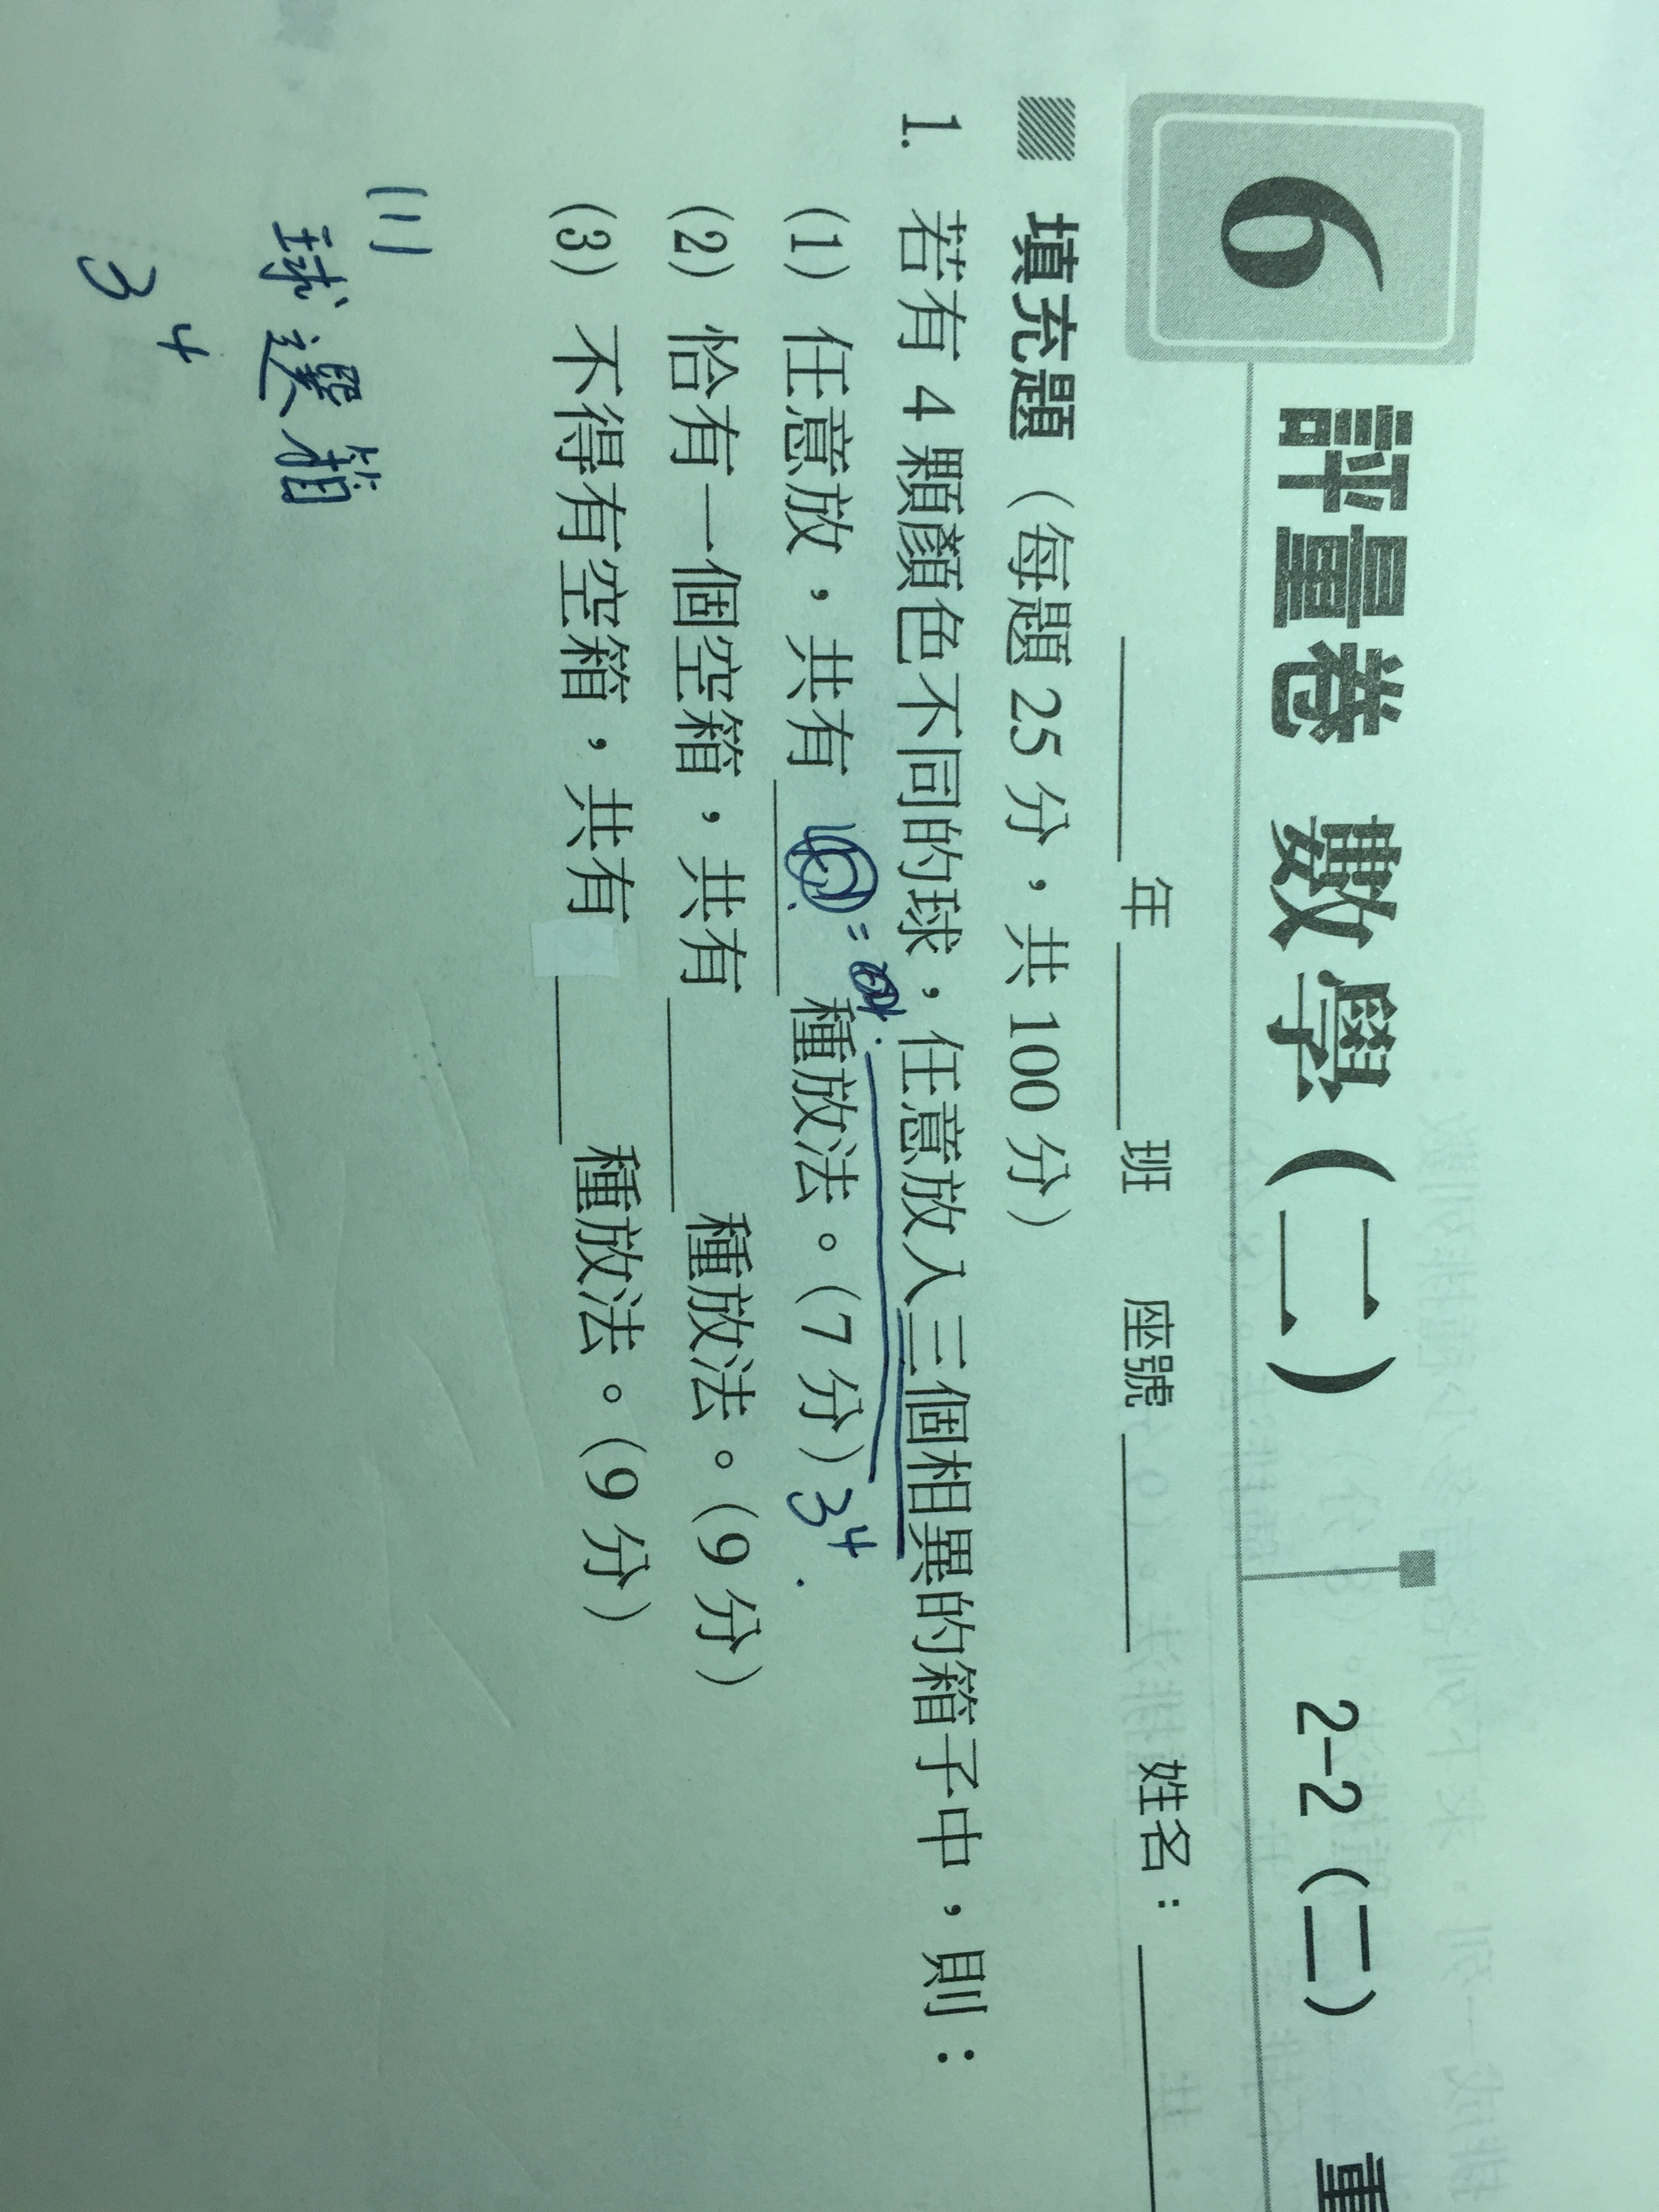 6 評量卷 數學(二) 2-2(二)
年 班 座號 姓名:
填充題(每題 25 分,共 100 分)
1. 若有 4 顆顏色不同的球,任意放入三個相異的箱子中,則:
(1) 任意放,共有 = 種放法。(7 分) 3⁴
(2) 恰有一個空箱,共有 種放法。(9 分)
(3) 不得有空箱,共有 種放法。(9 分)
(1)
球選箱
3⁴